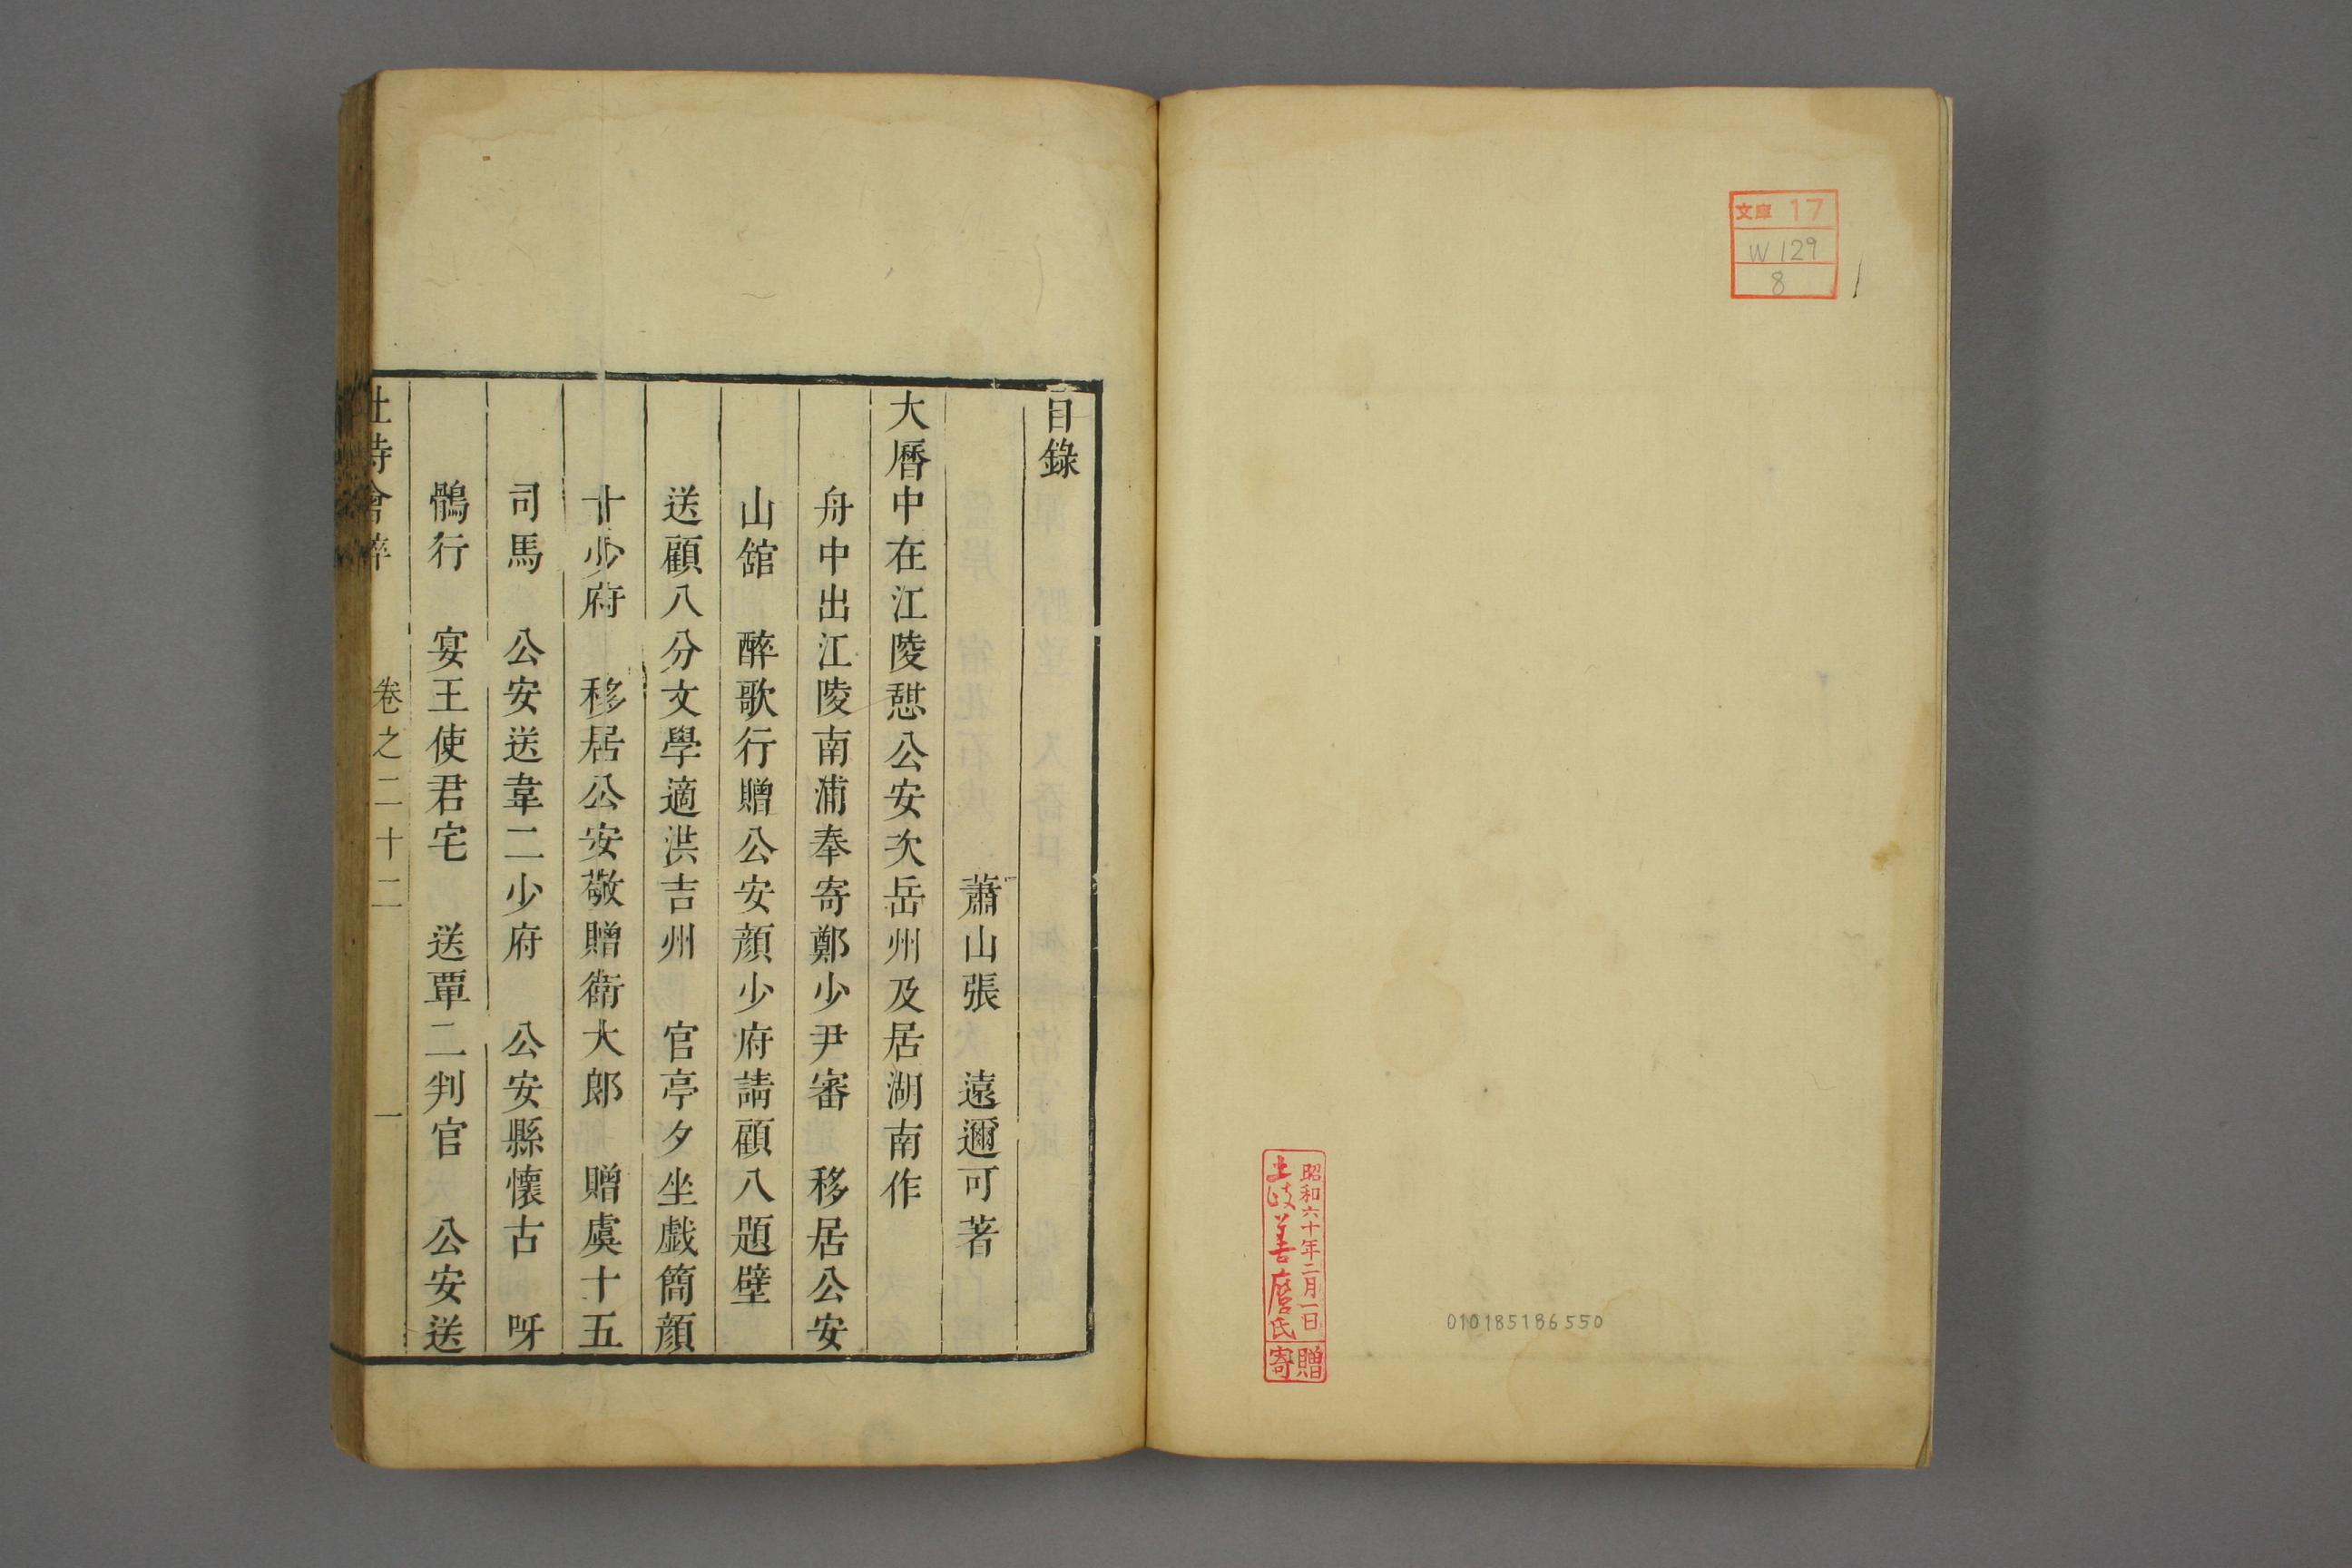 文庫 17
W129
8
昭和六十年二月一日
土岐善麿氏
寄贈
010185186550
目錄
蕭山張 遠邇可著
大曆中在江陵憇公安次岳州及居湖南作
舟中出江陵南浦奉寄鄭少尹審 移居公安
山舘 醉歌行贈公安顏少府請顧八題壁
送顧八分文學適洪吉州 官亭夕坐戯簡顏
十少府 移居公安敬贈衛大郎 贈虞十五
司馬 公安送韋二少府 公安縣懷古 呀
鶻行 宴王使君宅 送覃二判官 公安送
杜詩會稡 卷之二十二 一